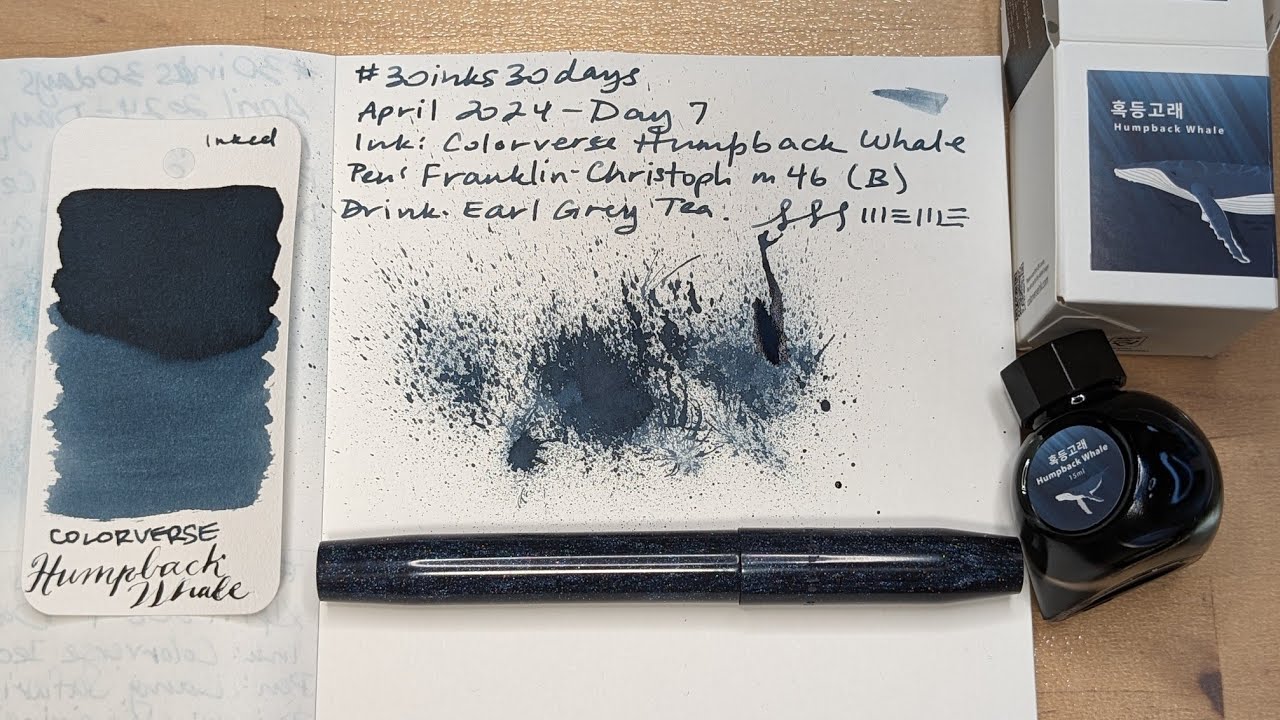 #30inks30days
April 2024 - Day 7
Ink: Colorverse Humpback Whale
Pen: Franklin-Christoph m46 (B)
Drink. Earl Grey Tea.
Inked
COLORVERSE
Humpback
Whale
혹등고래
Humpback Whale
혹등고래
Humpback Whale
15ml